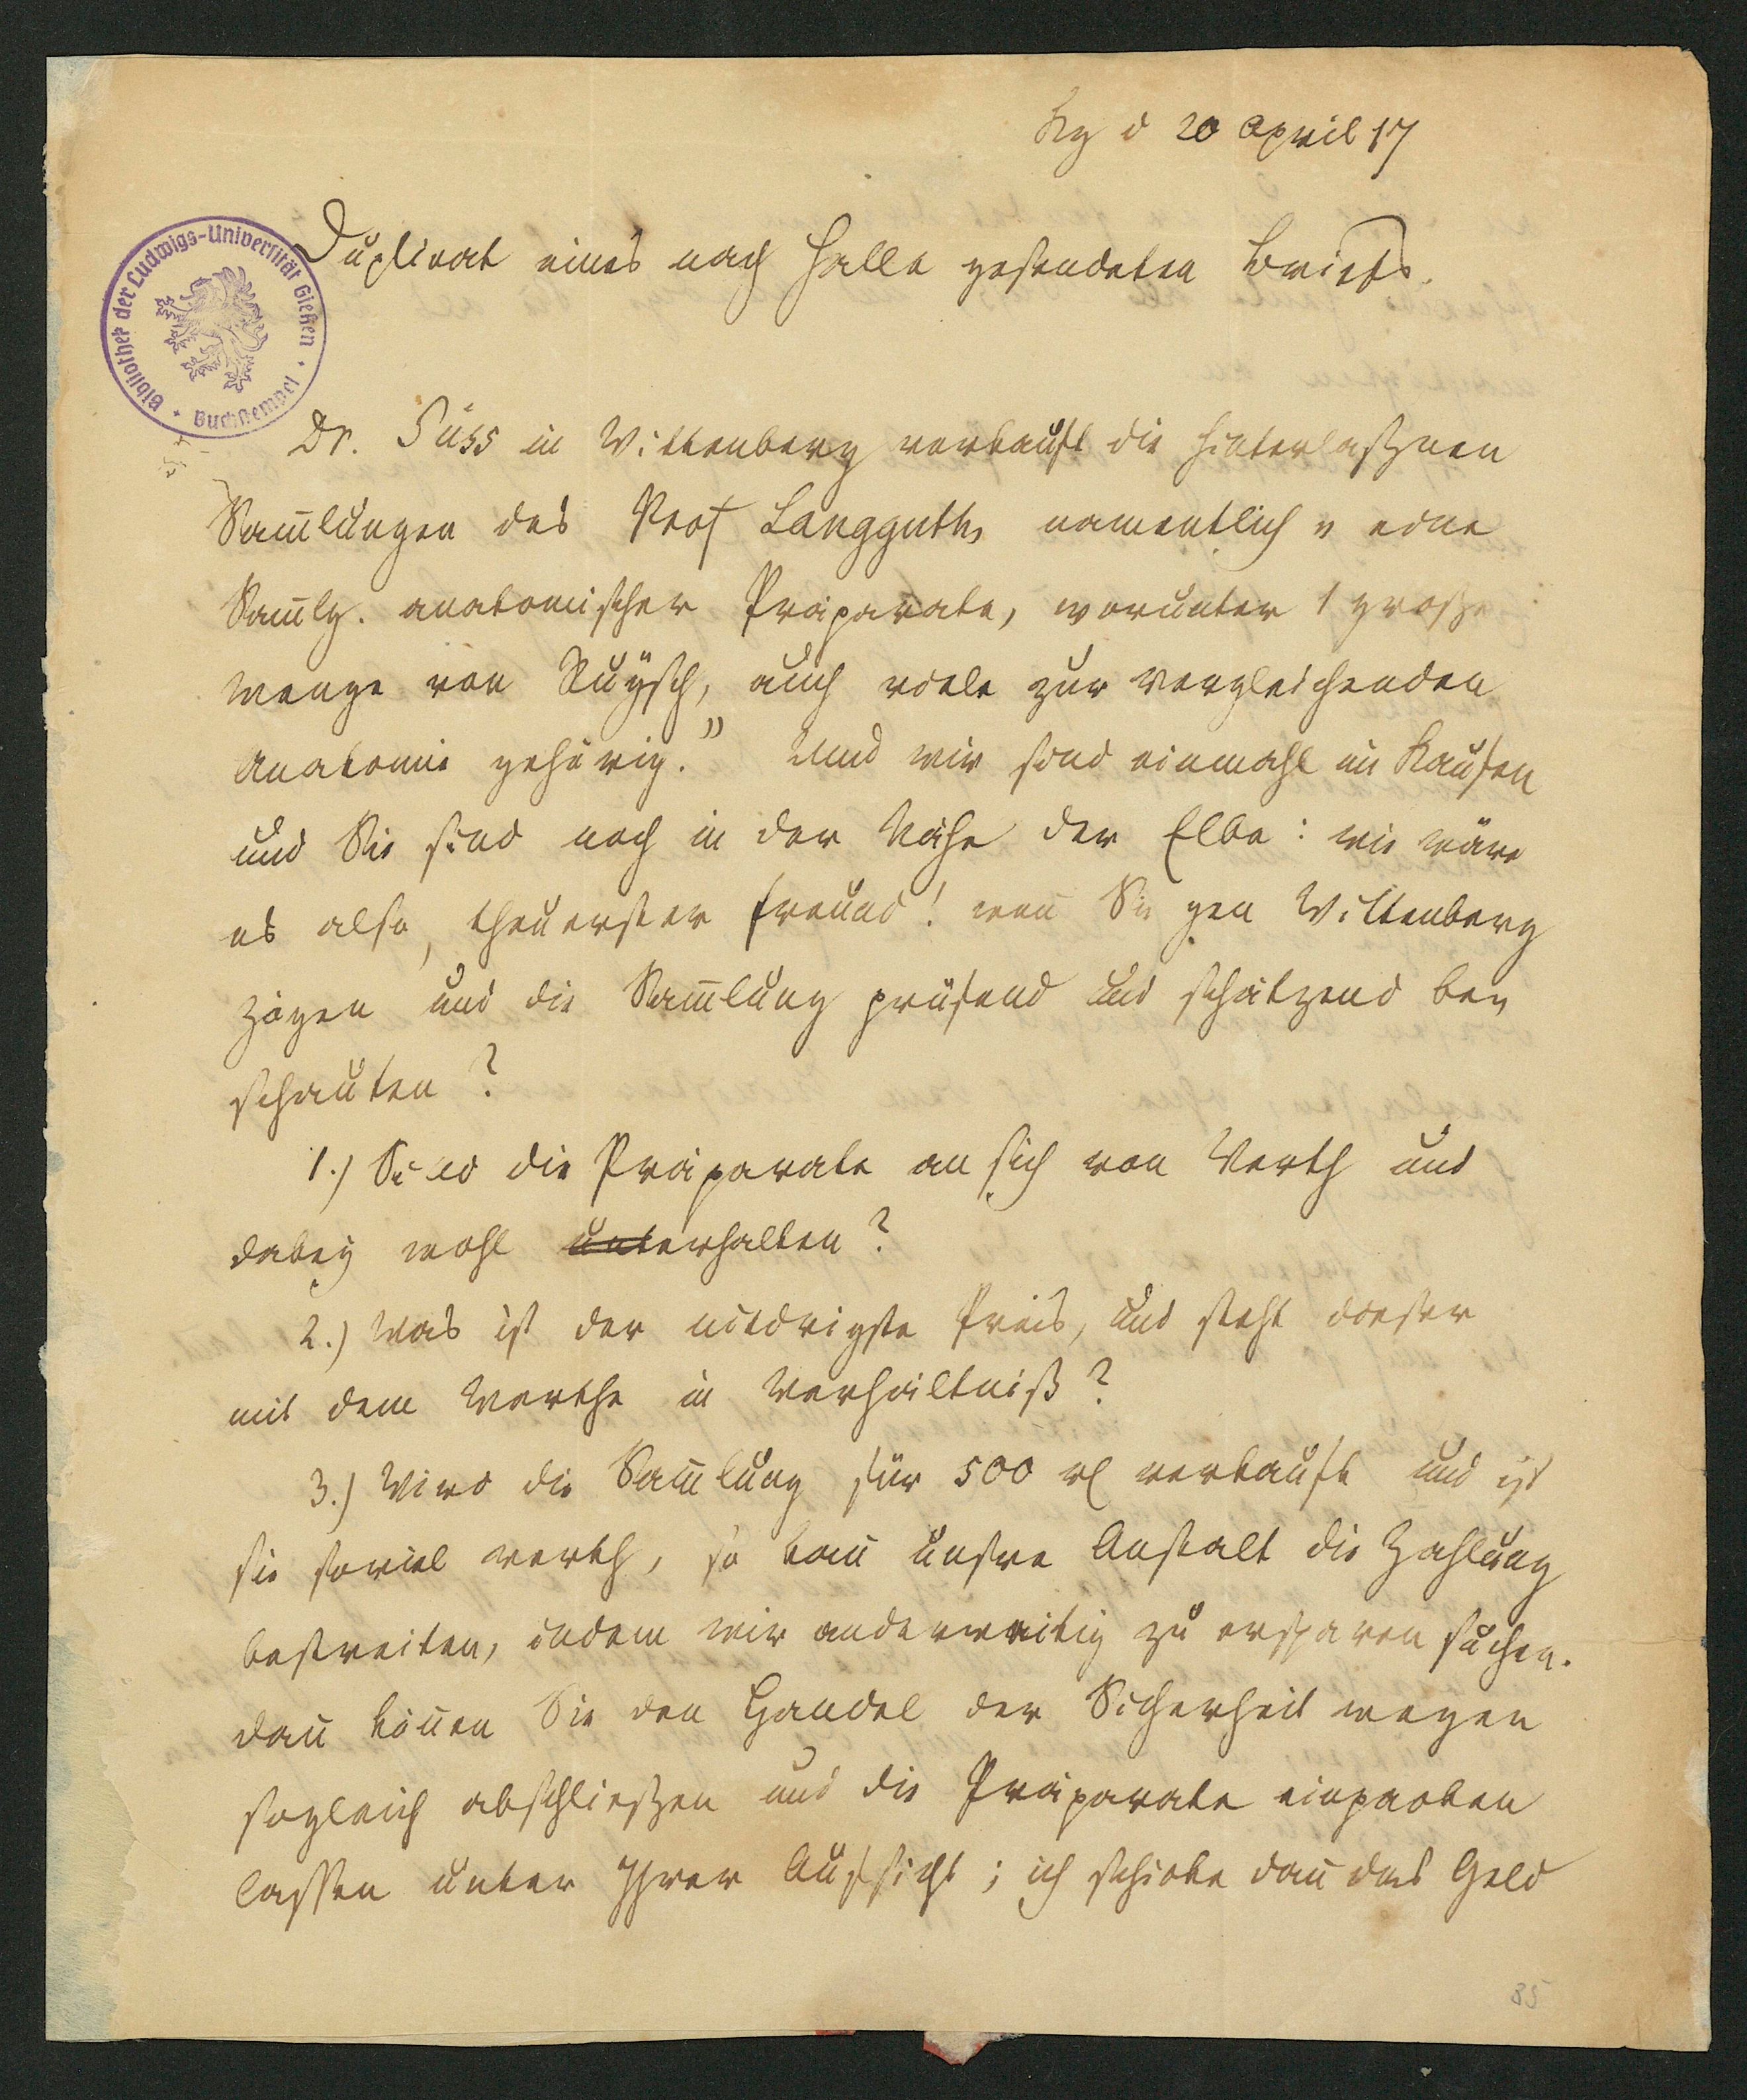 Kg d 20 April 17
Duplicat eines nach Halle gesendeten Briefs.
Bibliothek der Ludwigs-Universität Gießen · Buchstempel ·
Dr. Süss in Wittenberg verkauft die hinterlaßnen
Sam̅lungen des Prof Langguths namentlich „ eine
Sam̅lg. anatomischer Präparate, worunter 1 große
Menge von Ruÿsch, auch viele zur vergleichenden
Anatomie gehörig.“ Und wir sind einmahl im Kaufen
und Sie sind noch in der Nähe der Elbe: wie wäre
es also, theuerster Freund! wen̅ Sie gen Wittenberg
zögen und die Sam̅lung prüfend und schätzend be¬
schauten?
1.) Sind die Präparate an sich von Werth und
dabey wohl unterhalten?
2.) Was ist der niedrigste Preis, und steht dieser
mit dem Werthe in Verhältniß?
3.) Wird die Sam̅lung für 500 rl verkauft und ist
sie soviel werth, so kan̅ unsre Anstalt die Zahlung
bestreiten, indem wir anderweitig zu ersparen suchen.
dan̅ kön̅en Sie den Handel der Sicherheit wegen
sogleich abschließen und die Präparate einpacken
lassen unter Ihrer Aufsicht; ich schicke dan̅ das Geld
85